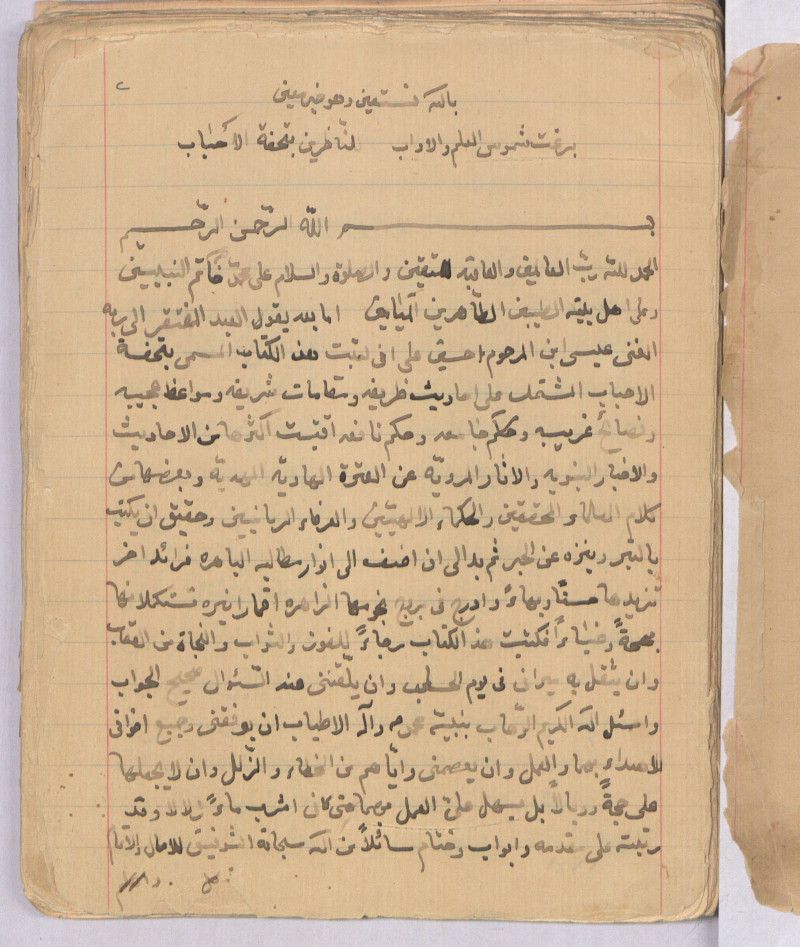 ٢
بالله نستعين وهو خير معين
بزغت شموس العلم والاداب للناظرين بتحفة الأحباب
بسم الله الرّحمن الرّحيم
الحمد للّه ربّ العالمين والعاقبة للمتقين والصلوة والسلام على محمّد خاتم النبيين
وعلى اهل بيته الطيبين الطّاهرين الميامين اما بعد يقول العبد المفتقر الى ربه
الغنى عيسى ابن المرحوم احسين على انى لما كتبت هذا الكتاب المسمى بتحفة
الاحباب المشتمل على احاديث ظريفه ومقامات شريفه ومواعظ عجيبه
ونصائح غريبه وحكم جامعه وحكم نافعه اقتبست اكثرها من الاحاديث
والاخبار النبويه والاثار المرويّه عن العترة الهاديّه المهديّة وبعضها من
كلام العلماء المحققين والحكماء الالهيّين والعرفاء الربانيين وحقيق ان يكتب
بالتبر وينزه عن الحبر ثم بدا لى ان اضف الى انوار مطالبه الباهره فرائد اخر
تزيدها حسنًا وبهاءً وادرج فى بروج نجومها الزاهره اقمارا نيره تستكلا منها
بهجةً وضياءً فكتبت هذ الكتاب رجاءً للفوز والثواب والنجاة من العقاب
وان يثقل به ميزانى فى يوم الحساب وان يلقننى عند السّئوال صحيح الجواب
واسئل الله الكريم الوهاب بنبيّه محمد وآله الاطياب ان يوفقنى وجميع اخوانى
للاهتداء بها والعمل وان يعصمنى وايّاهم من الخطاء والزّلل وان لا يجعلها
على حجةً ووبالاً بل يسهل علىّ العمل بها حتى كانى اشرب ماءً زلالا وقد
رتبته على مقدمه وابواب وختام سائلاً من الله سبحانه التوفيق للاكمال والاتمام